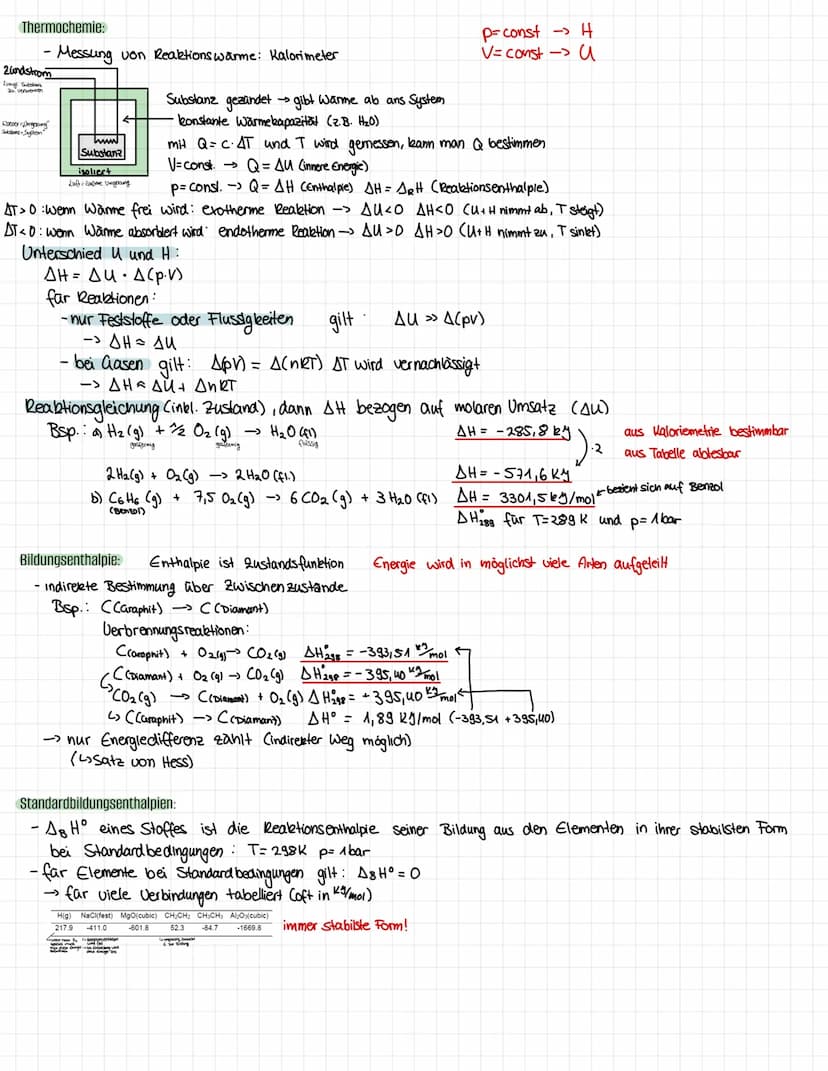 Thermochemie:
p=const → H
V=const → U
- Messung von Reaktionswärme: Kalorimeter
Zündstrom
Substanz
isoliert
Substanz gezündet → gibt Wärme ab ans System
konstante Wärmekapazität (z.B. H₂O)
mit Q = C · ΔT und T wird gemessen, kann man Q bestimmen
V=const. → Q = ΔU (innere Energie)
p=const. → Q = ΔH (Enthalpie) ΔH = ΔRH (Reaktionsenthalpie)
ΔT>0 : wenn Wärme frei wird: exotherme Reaktion → ΔU<0 ΔH<0 (U+H nimmt ab, T steigt)
ΔT<0 : wenn Wärme absorbiert wird: endotherme Reaktion → ΔU>0 ΔH>0 (U+H nimmt zu, T sinkt)
Unterschied U und H:
ΔH = ΔU · Δ(p·V)
für Reaktionen:
- nur Feststoffe oder Flüssigkeiten gilt: ΔU >> Δ(pV)
→ ΔH ≈ ΔU
- bei Gasen gilt: Δ(pV) = Δ(nRT) ΔT wird vernachlässigt
→ ΔH ≈ ΔU + ΔnRT
Reaktionsgleichung (inkl. Zustand), dann ΔH bezogen auf molaren Umsatz (ΔU)
Bsp.: a) H₂(g) + ½ O₂(g) → H₂O(fl) ΔH = -285,8 kJ
gasförmig gasförmig flüssig
·2
aus Kaloriemetrie bestimmbar
aus Tabelle ablesbar
2H₂(g) + O₂(g) → 2H₂O(fl.) ΔH = -571,6 KJ
b) C₆H₆(g) + 7,5 O₂(g) → 6CO₂(g) + 3H₂O(fl) ΔH = 3301,5 kJ/mol ← bezieht sich auf Benzol
(Benzol)
ΔH°289 für T=289 K und p=1bar
Bildungsenthalpie: Enthalpie ist Zustandsfunktion Energie wird in möglichst viele Arten aufgeteilt
- indirekte Bestimmung über Zwischenzustände
Bsp.: C(Graphit) → C(Diamant)
Verbrennungsreaktionen:
C(Graphit) + O₂(g) → CO₂(g) ΔH°298 = -393,51 kJ/mol
C(Diamant) + O₂(g) → CO₂(g) ΔH°298 = -395,40 kJ/mol
CO₂(g) → C(Diamant) + O₂(g) ΔH°298 = +395,40 kJ/mol
↳ C(Graphit) → C(Diamant) ΔH° = 1,89 KJ/mol (-393,51 +395,40)
→ nur Energiedifferenz zählt (indirekter Weg möglich)
(↳Satz von Hess)
Standardbildungsenthalpien:
- ΔBH° eines Stoffes ist die Reaktionsenthalpie seiner Bildung aus den Elementen in ihrer stabilsten Form
bei Standardbedingungen: T=298K p=1bar
- für Elemente bei Standardbedingungen gilt: ΔBH°=0
→ für viele Verbindungen tabelliert (oft in kJ/mol)
H(g) NaCl(fest) MgO(cubic) CH₂CH₂ CH₃CH₃ Al₂O₃(cubic)
217.9 -411.0 -601.8 52.3 -84.7 -1669.8
immer stabilste Form!